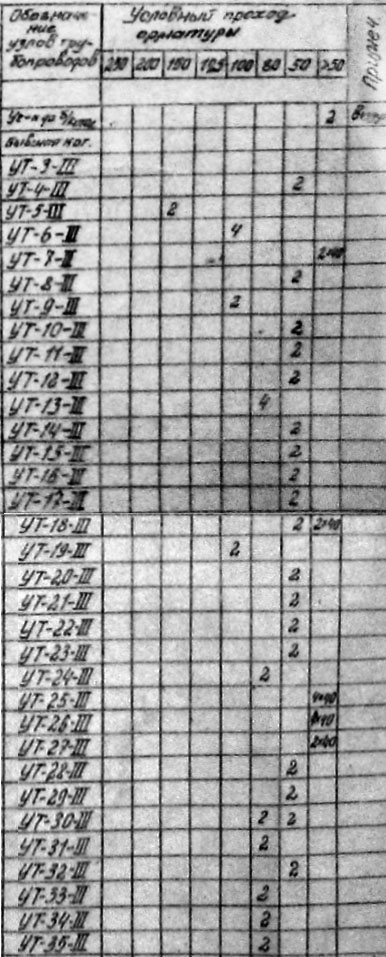 Обозначе-
ние
узлов тру-
бопроводов
Условный проход
арматуры
Примеч
250 200 150 125 100 80 50 >50
2
УТ-3-III
УТ-4-III 2
УТ-5-III 2
УТ-6-III 4
УТ-7-III 2×40
УТ-8-III 2
УТ-9-III 2
УТ-10-III 2
УТ-11-III 2
УТ-12-III 2
УТ-13-III 4
УТ-14-III 2
УТ-15-III 2
УТ-16-III 2
УТ-17-III 2
УТ-18-III 2 2×40
УТ-19-III 2
УТ-20-III 2
УТ-21-III 2
УТ-22-III 2
УТ-23-III 2
УТ-24-III 2
УТ-25-III 4×40
УТ-26-III
УТ-27-III 2×40
УТ-28-III 2
УТ-29-III 2
УТ-30-III 2 2
УТ-31-III 2
УТ-32-III 2
УТ-33-III 2
УТ-34-III 2
УТ-35-III 2